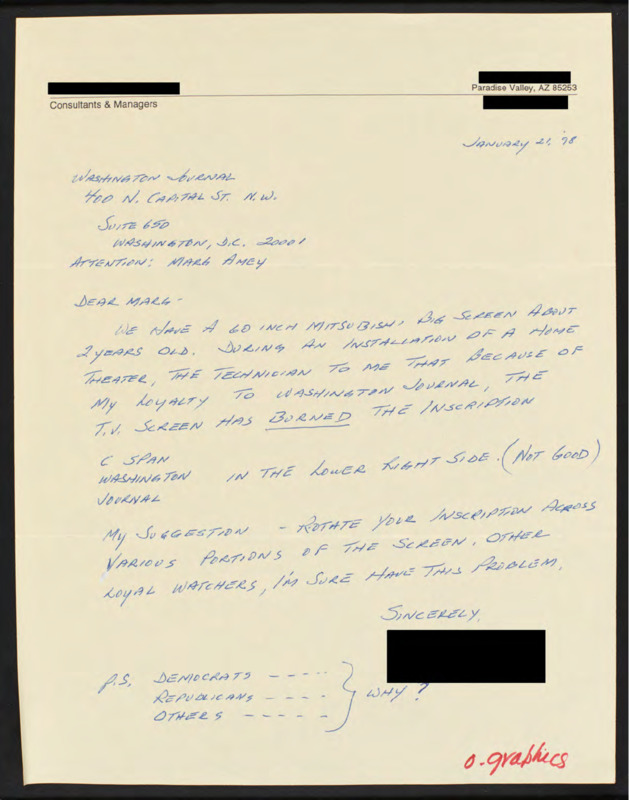 Paradise Valley, AZ 85253
Consultants & Managers
JANUARY 21, '98
WASHINGTON JOURNAL
400 N. CAPITAL ST. N.W.
SUITE 650
WASHINGTON, D.C. 20001
ATTENTION: MARG AMEY
DEAR MARG -
WE HAVE A 60 INCH MITSUBISHI BIG SCREEN ABOUT
2 YEARS OLD. DURING AN INSTALLATION OF A HOME
THEATER, THE TECHNICIAN TO ME THAT BECAUSE OF
MY LOYALTY TO WASHINGTON JOURNAL, THE
T.V. SCREEN HAS BURNED THE INSCRIPTION
C SPAN
WASHINGTON IN THE LOWER RIGHT SIDE. (NOT GOOD)
JOURNAL
MY SUGGESTION - ROTATE YOUR INSCRIPTION ACROSS
VARIOUS PORTIONS OF THE SCREEN. OTHER
LOYAL WATCHERS, I'M SURE HAVE THIS PROBLEM.
SINCERELY,
P.S. DEMOCRATS - - - - -
REPUBLICANS - - - - } WHY?
OTHERS - - - - -
o-graphics